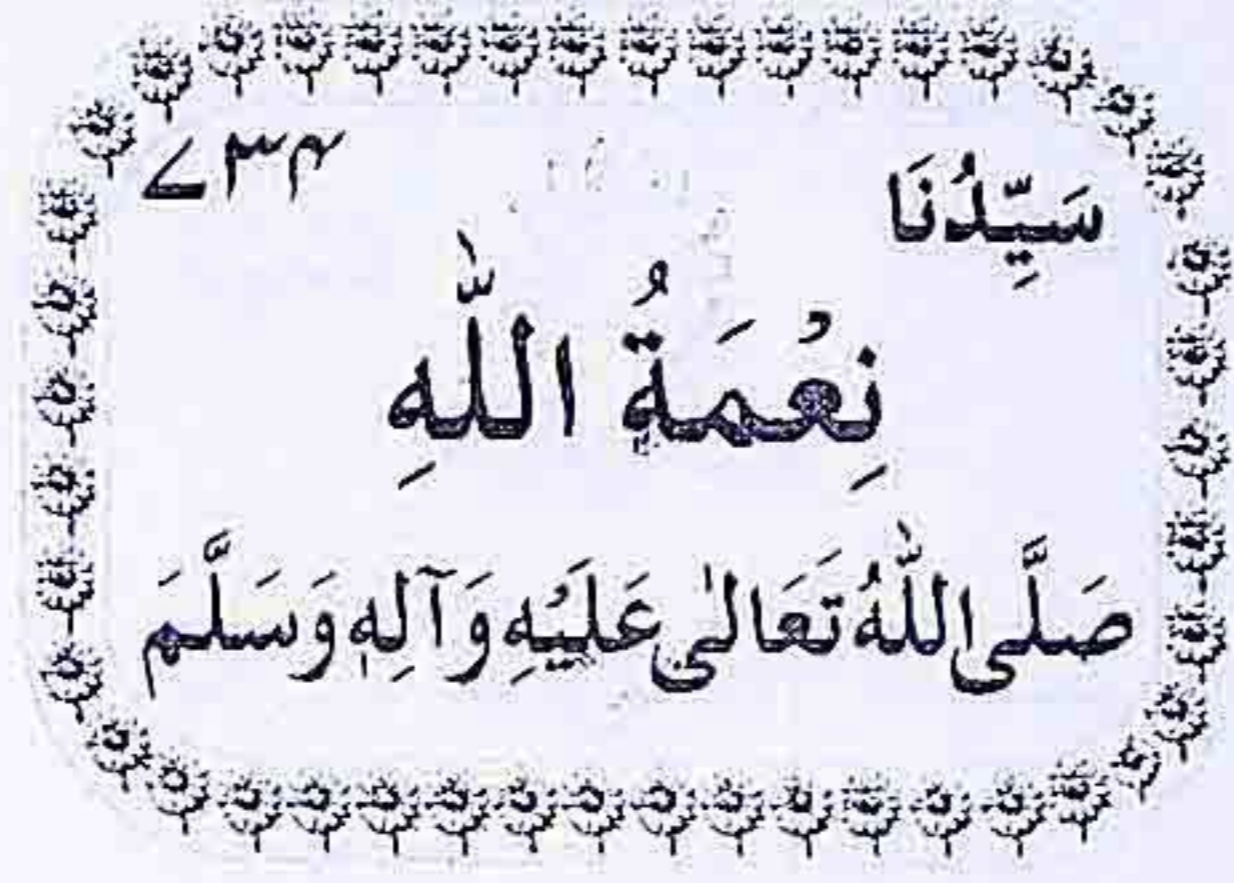 سَيِّدُنَا ۷۳۴
نِعْمَةُ اللّٰهِ
صَلَّى اللّٰهُ تَعَالٰى عَلَيْهِ وَآلِهٖ وَسَلَّمَ